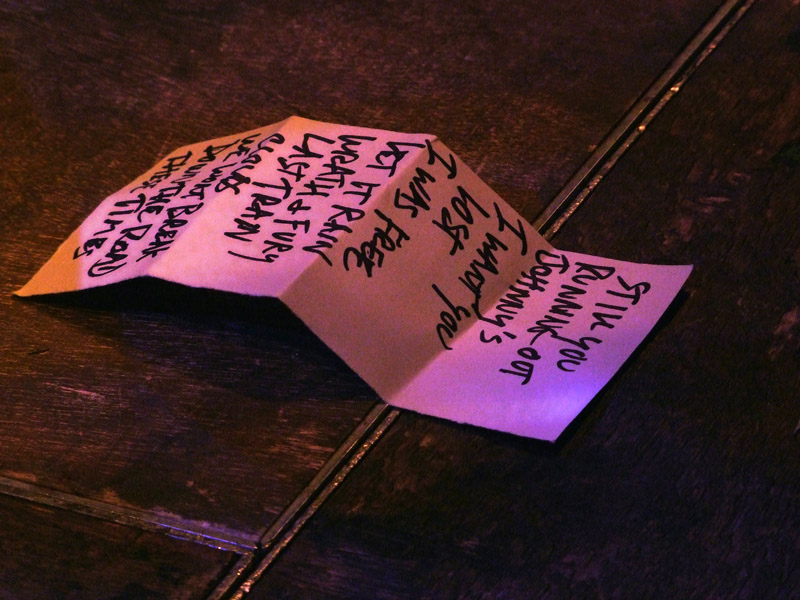 STILL YOU
RUNNING OUT
JOHNNY'S
I WANT YOU
LOST
I WAS FREE
LET IT RAIN
WRATH & FURY
LAST TRAIN
WE WON'T BREAK
DOWN THE ROAD
THESE TIMES